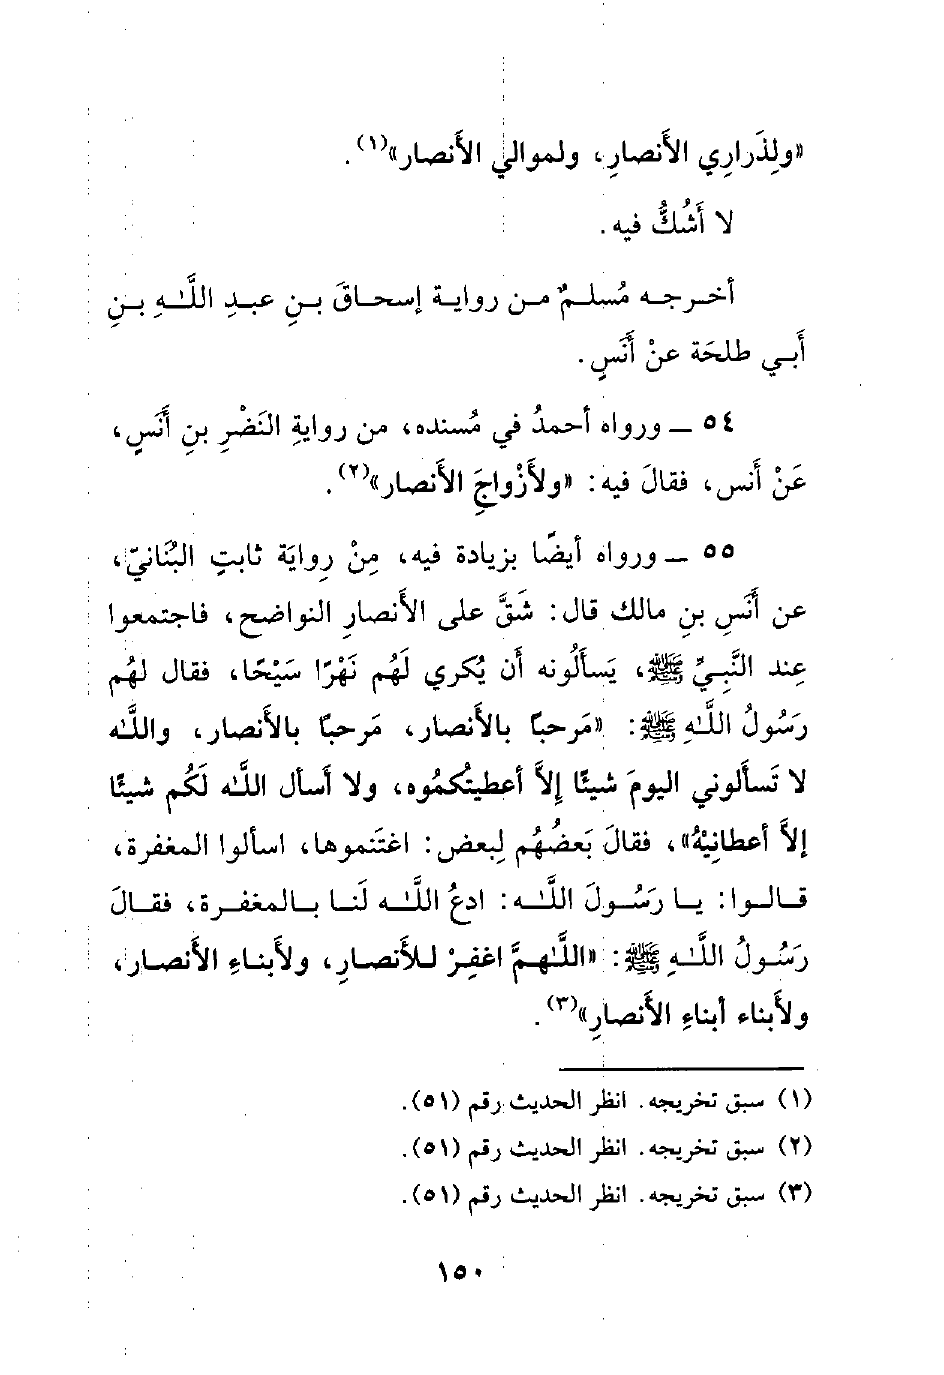 «ولِذَراري الأنصارِ، ولموالي الأنصار»(١).
لا أَشُكُّ فيه.
أخرجه مُسلمٌ من رواية إسحاقَ بنِ عبدِ اللَّهِ بنِ
أَبي طلحَة عنْ أَنَسٍ.
٥٤ ــ ورواه أحمدُ في مُسنده، من روايةِ النَضْرِ بنِ أَنَسٍ،
عَنْ أَنس، فقالَ فيه: «ولأَزْواجِ الأَنصار»(٢).
٥٥ ــ ورواه أيضًا بزيادة فيه، مِنْ رِوايَة ثابتٍ البُنَانيّ،
عن أَنَسِ بنِ مالك قال: شَقَّ على الأَنصارِ النواضح، فاجتمعوا
عِند النَّبِيِّ ﷺ، يَسأَلُونه أن يُكري لَهُم نَهْرًا سَيْحًا، فقال لهُم
رَسُولُ اللَّهِ ﷺ: «مَرحبًا بالأَنصار، مَرحبًا بالأَنصار، واللَّه
لا تَسأَلوني اليومَ شيئًا إِلاَّ أعطيتُكمُوه، ولا أَسأل اللَّه لَكُم شيئًا
إلاَّ أعطانِيْهُ»، فقالَ بَعضُهُم لِبعض: اغتَنموها، اسألوا المغفرة،
قالوا: يا رَسُولَ اللَّه: ادعُ اللَّه لَنا بالمغفرة، فقالَ
رَسُولُ اللَّهِ ﷺ: «اللَّهمَّ اغفِرْ للأَنصارِ، ولأَبناءِ الأَنصار،
ولأَبناء أبناءِ الأَنصارِ»(٣).
(١) سبق تخريجه. انظر الحديث رقم (٥١).
(٢) سبق تخريجه. انظر الحديث رقم (٥١).
(٣) سبق تخريجه. انظر الحديث رقم (٥١).
١٥٠